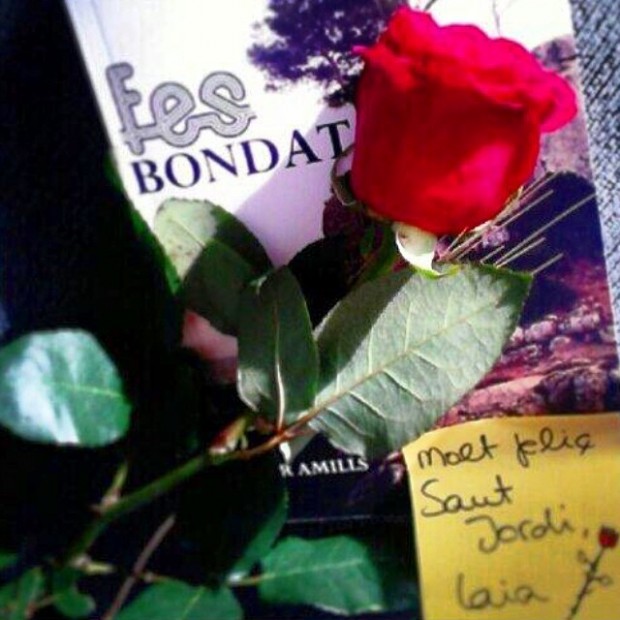 Fes
BONDAT
R AMILLS
Molt feliç
Sant
Jordi,
laia